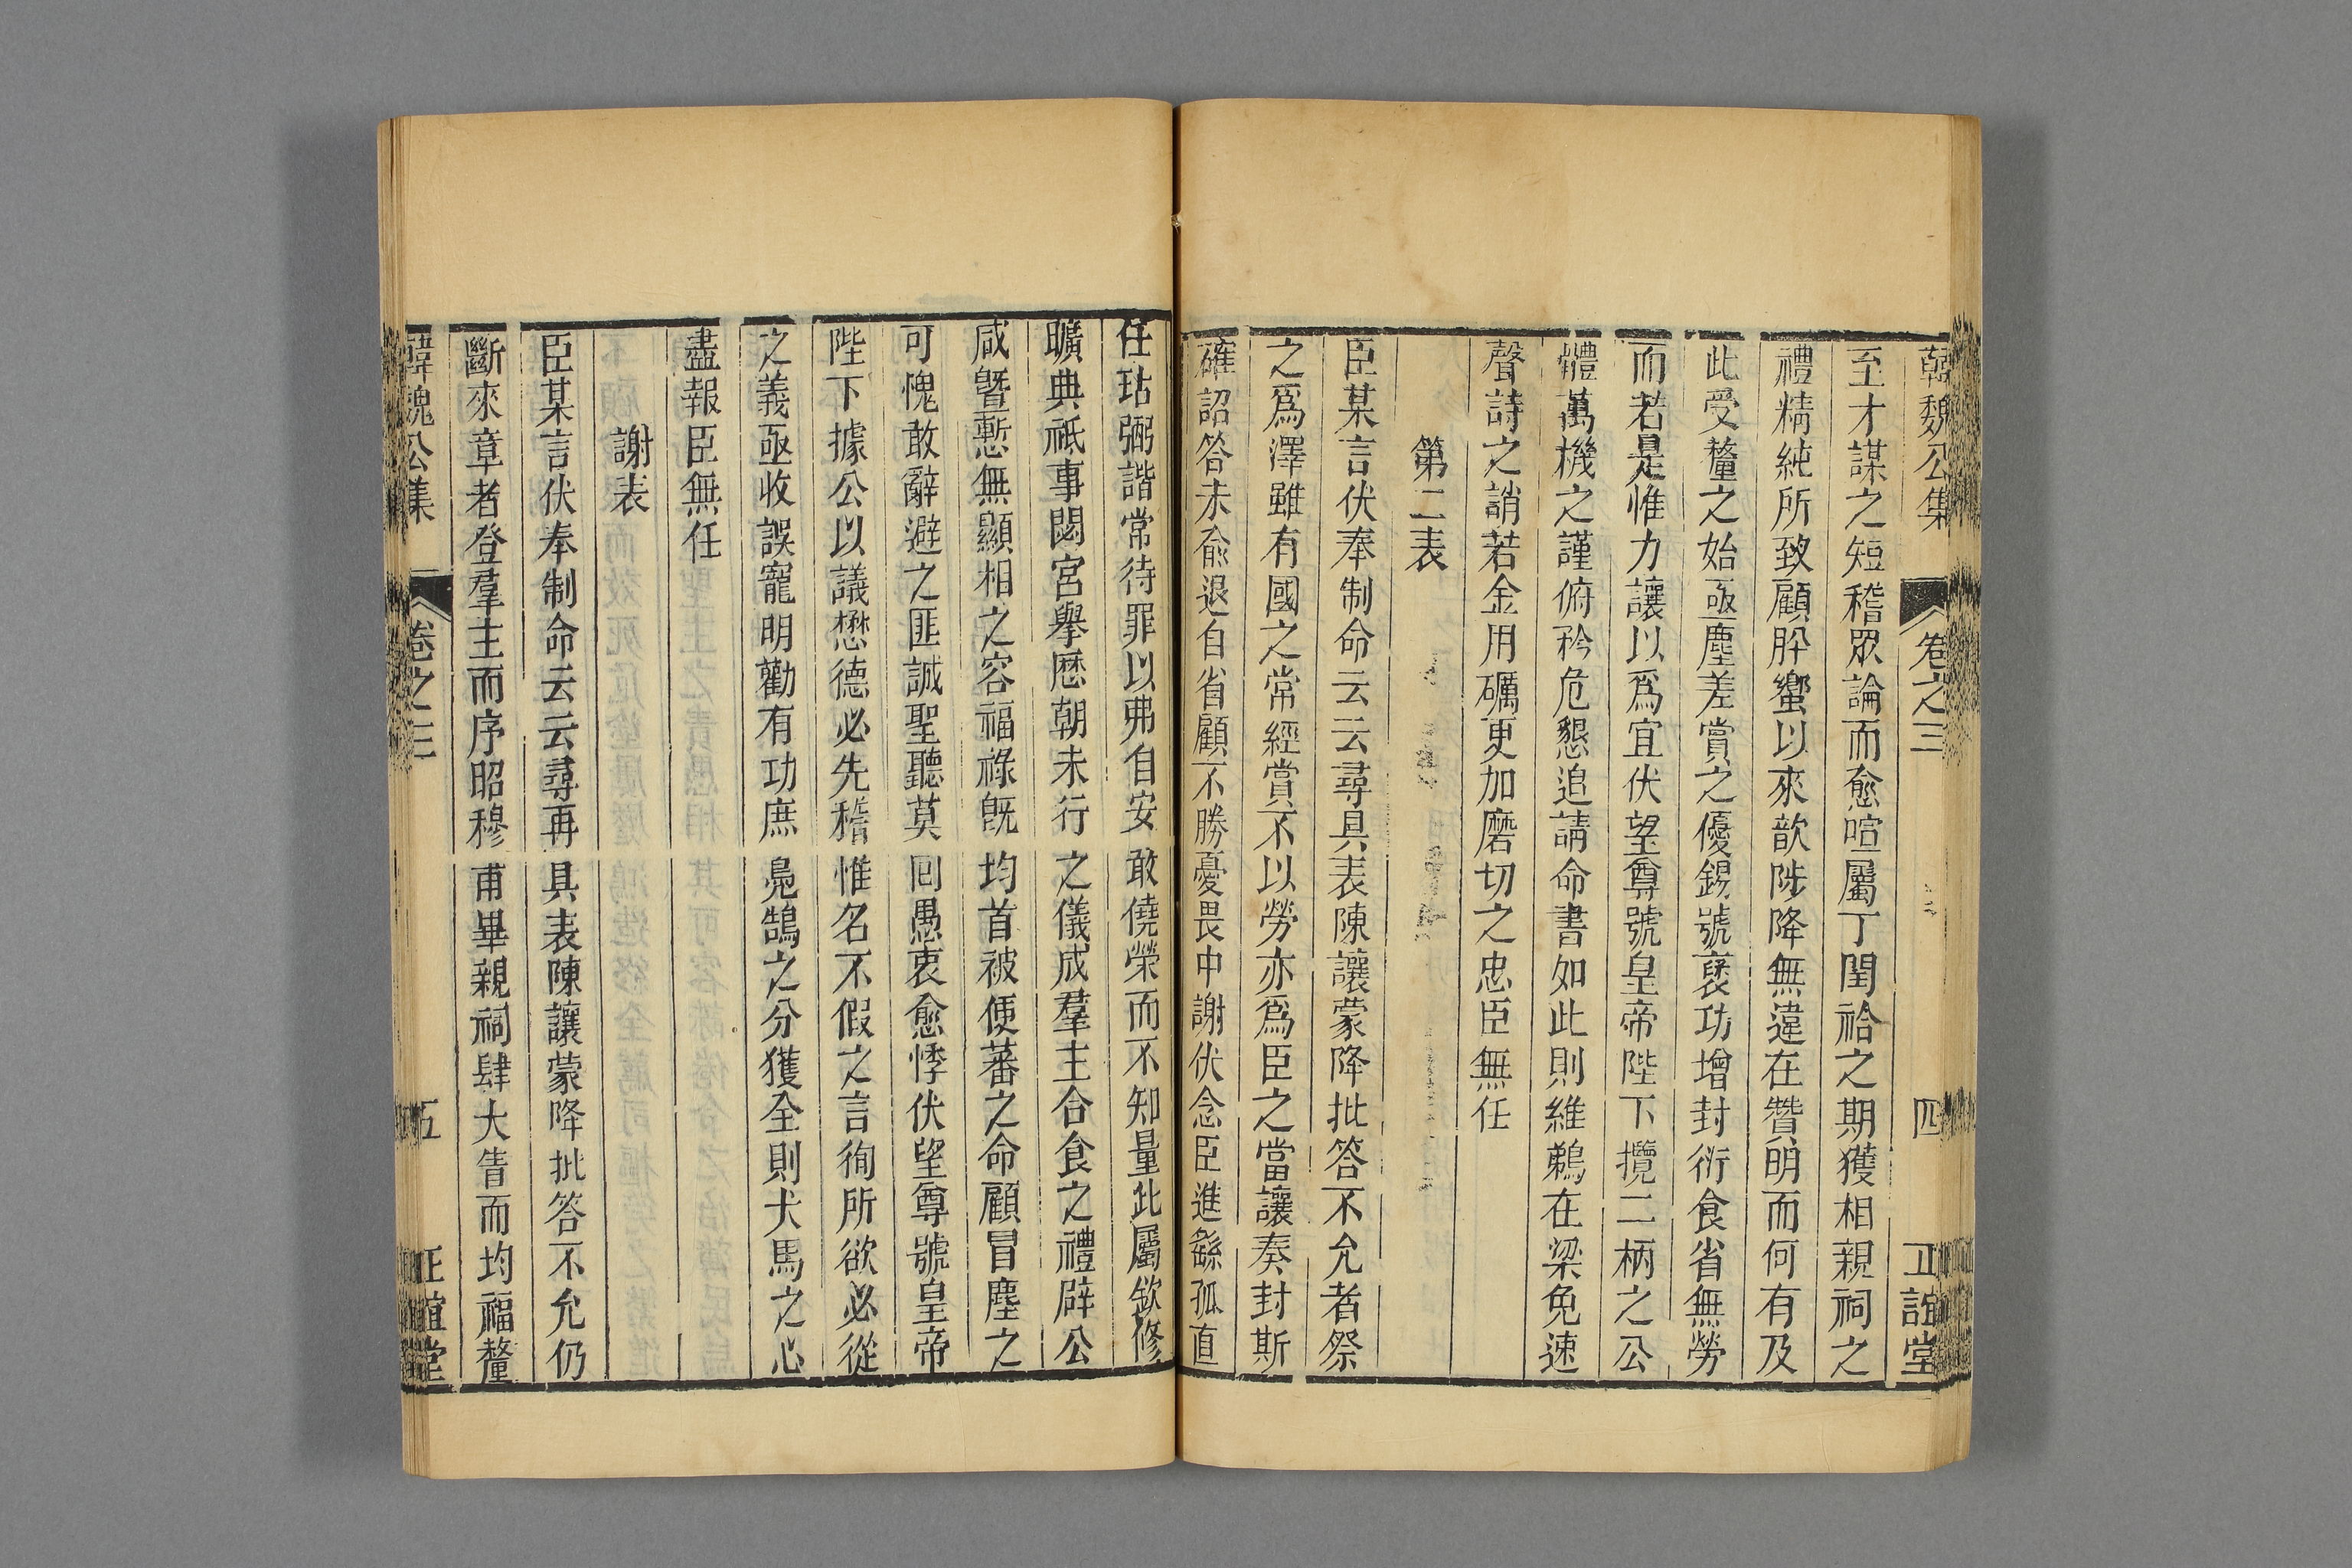 韓魏公集 卷之三 四 正誼堂
至才謀之短稽眾論而愈喧屬丁閏祫之期獲相親祠之
禮精純所致顧肸蠁以來歆陟降無違在贊明而何有及
此受釐之始亟塵差賞之優錫號褒功增封衍食省無勞
而若是惟力讓以爲宜伏望尊號皇帝陛下攬二柄之公
體萬機之謹俯矜危懇追請命書如此則維鵜在梁免速
聲詩之誚若金用礪更加磨切之忠臣無任
第二表
臣某言伏奉制命云云尋具表陳讓蒙降批答不允者祭
之爲澤雖有國之常經賞不以勞亦爲臣之當讓奏封斯
確詔答未兪退自省顧不勝憂畏中謝伏念臣進繇孤直
任玷弼諧常待罪以弗自安敢僥榮而不知量此屬欽修
曠典祗事閟宮舉歷朝未行之儀成羣主合食之禮辟公
咸曁慙無顯相之容福祿既均首被便蕃之命顧冒塵之
可愧敢辭避之匪誠聖聽莫回愚衷愈悸伏望尊號皇帝
陛下據公以議懋德必先稽惟名不假之言徇所欲必從
之義亟收誤寵明勸有功庶鳧鵠之分獲全則犬馬之心
盡報臣無任
謝表
臣某言伏奉制命云云尋再具表陳讓蒙降批答不允仍
斷來章者登羣主而序昭穆甫畢親祠肆大眚而均福釐
韓魏公集 卷之三 五 正誼堂